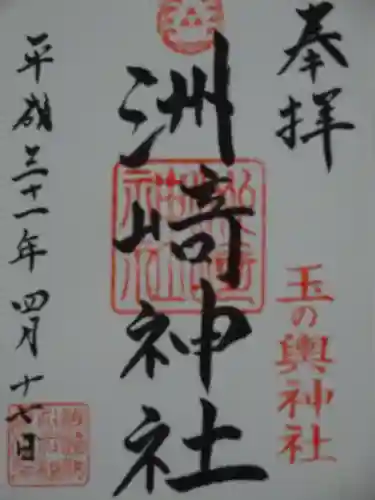 奉拝
玉の輿神社
洲崎神社
平成三十一年四月十七日